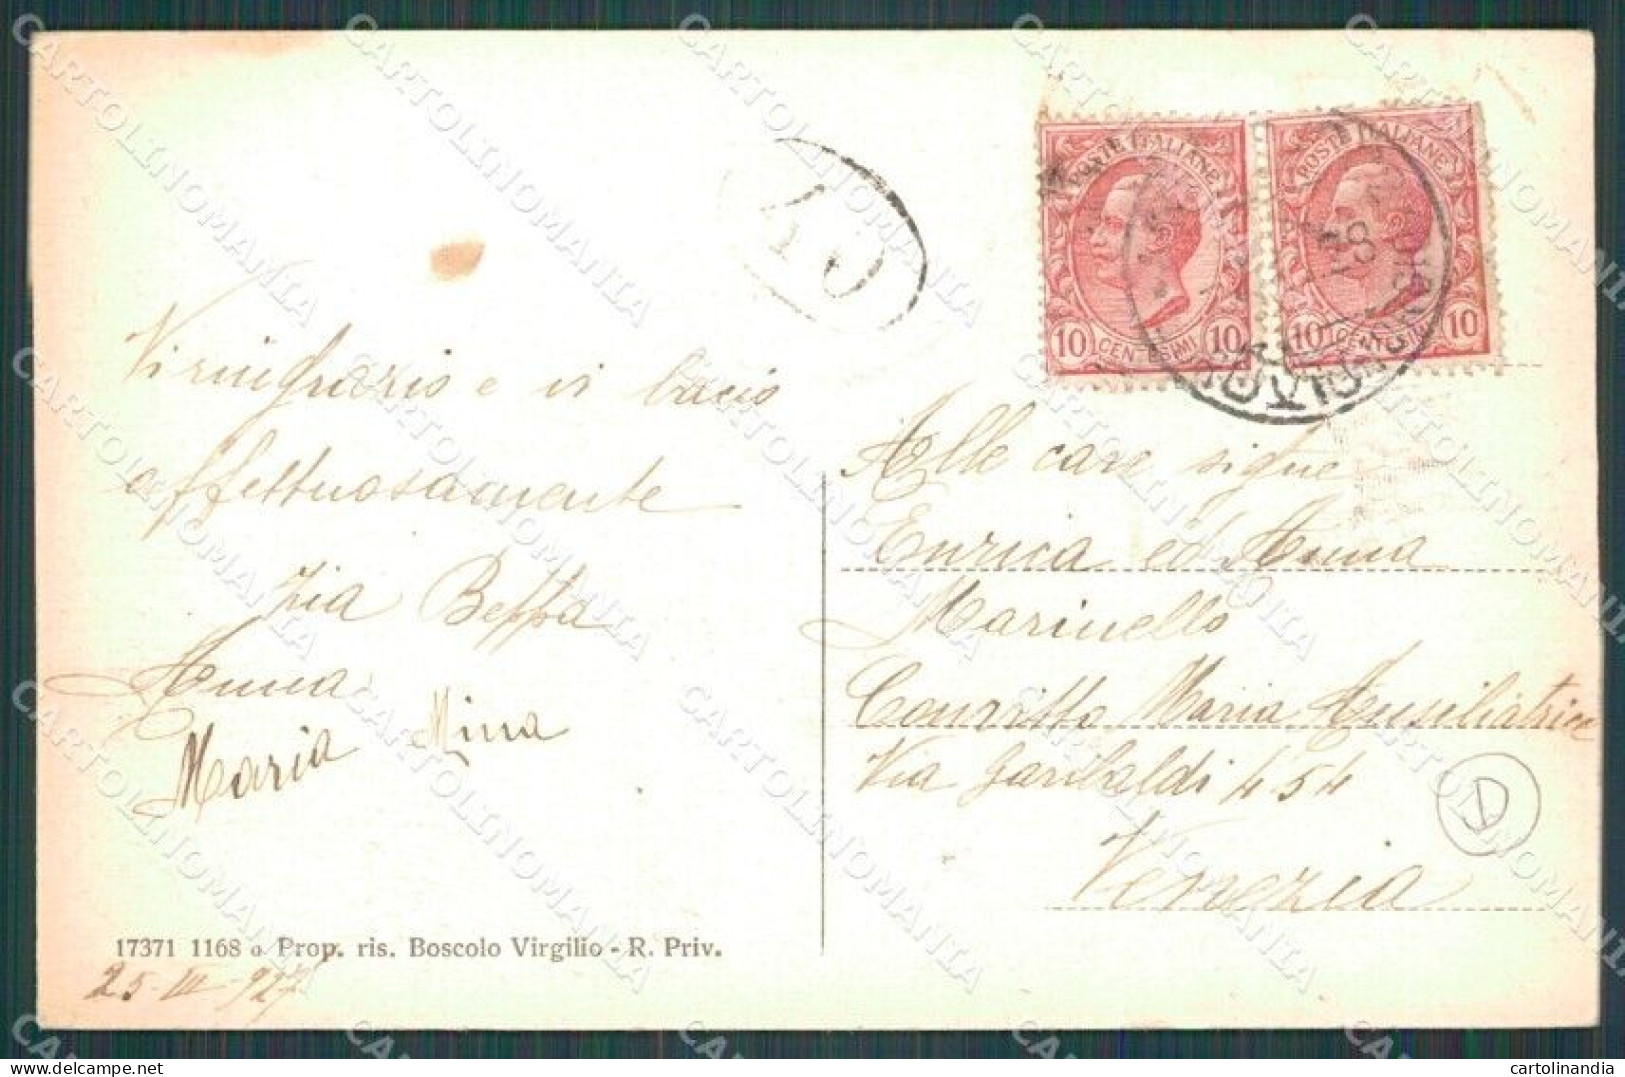 POSTE ITALIANE
10 CENTESIMI 10
POSTE ITALIANE
10 CENTESIMI 10
40
Vi ringrazio e vi bacio
affettuosamente
Zia Beppa
Anna
Maria Mina
Alle care signe
Enrica ed Anna
Marinello
Convitto Maria Ausiliatrice
Via Garibaldi 454
Venezia
D
17371 1168 a Prop. ris. Boscolo Virgilio - R. Priv.
25-III-927
CARTOLINOMANIA
cartolinandia